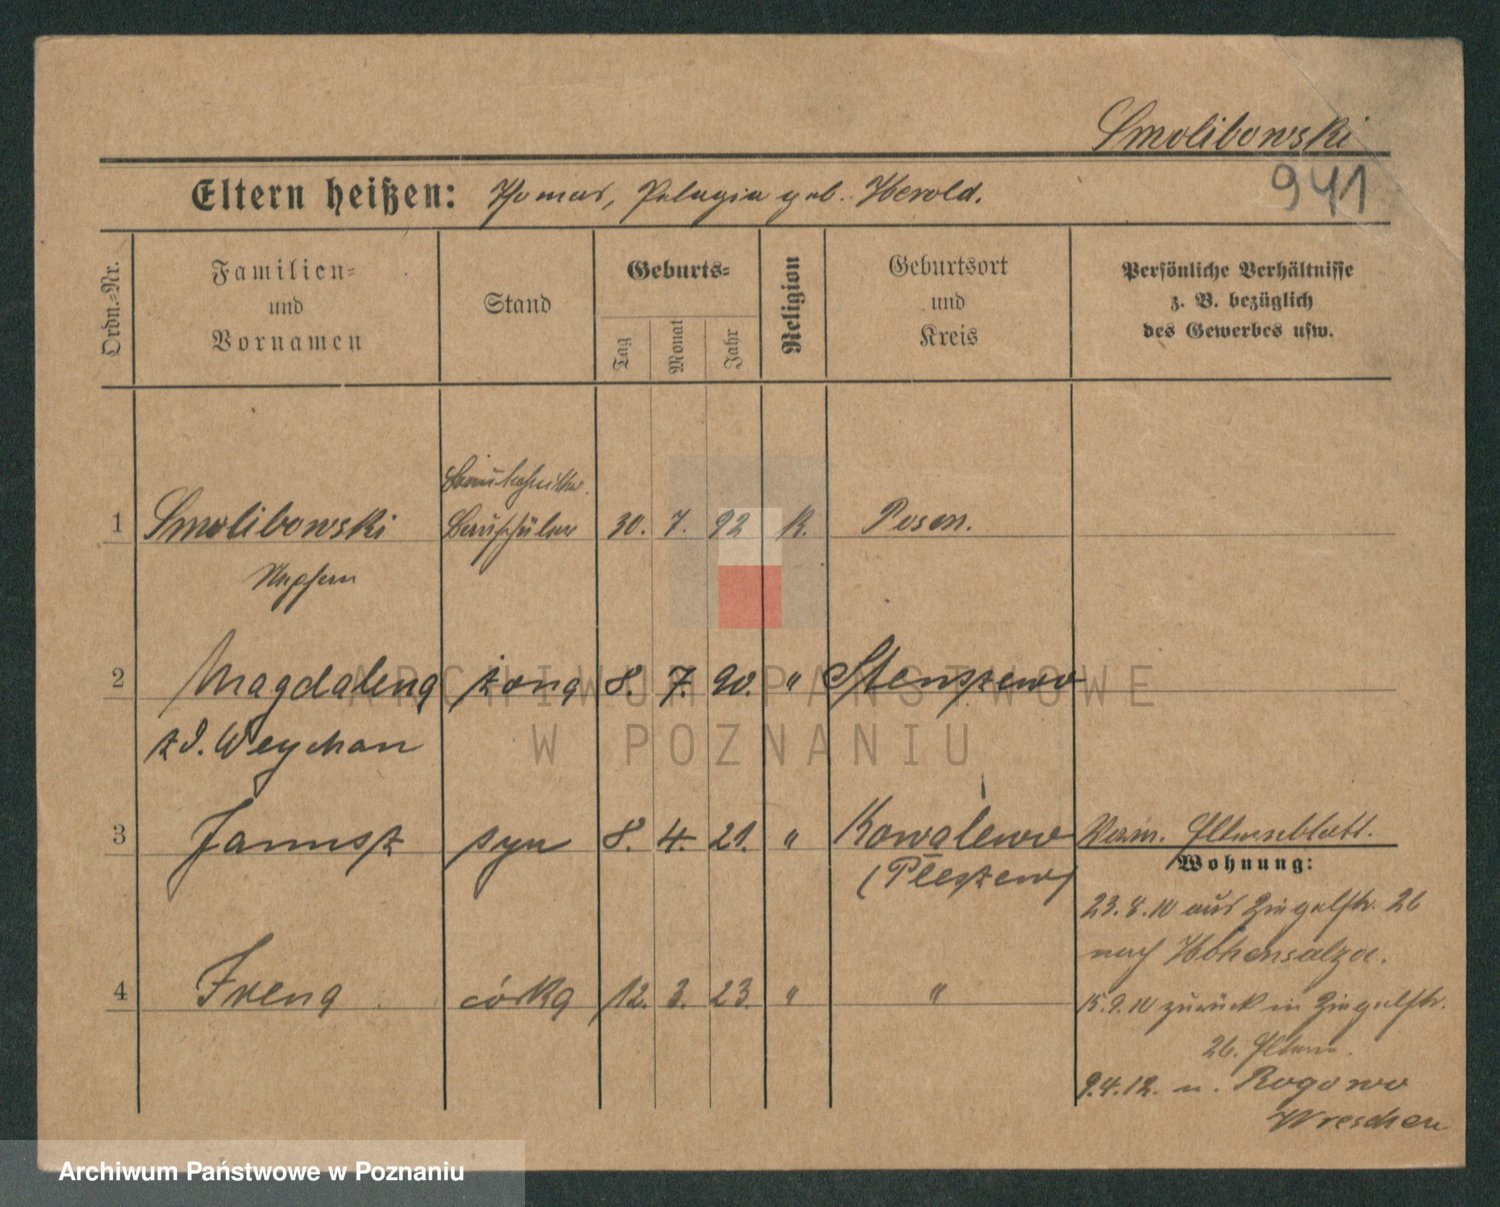 Smolibowski
941
Eltern heißen: Thomas, Pelagia geb. Herold.
Ordn.-Nr.
Familien-
und
Vornamen
Stand
Geburts-
Tag
Monat
Jahr
Religion
Geburtsort
und
Kreis
Persönliche Verhältnisse
z. B. bezüglich
des Gewerbes usw.
Bautechniker
1 Smolibowski Bauschüler 30. 7. 92 K. Posen.
Stephan
2 Magdalena żona 8. 7. 90. " Stenszewo
z d. Weychan
3 Janusz syn 8. 4. 21. " Kowalewo
(Pleszew)
Elternblatt.
Wohnung:
23.8.10 aus Ziegelstr. 26
nach Hohensalza.
4 Irena córka 12. 3. 23. " "
15.9.10 zurück in Ziegelstr.
26. Eltern.
9.4.12. n. Rogowo
Wreschen
ARCHIWUM PAŃSTWOWE
W POZNANIU
Archiwum Państwowe w Poznaniu